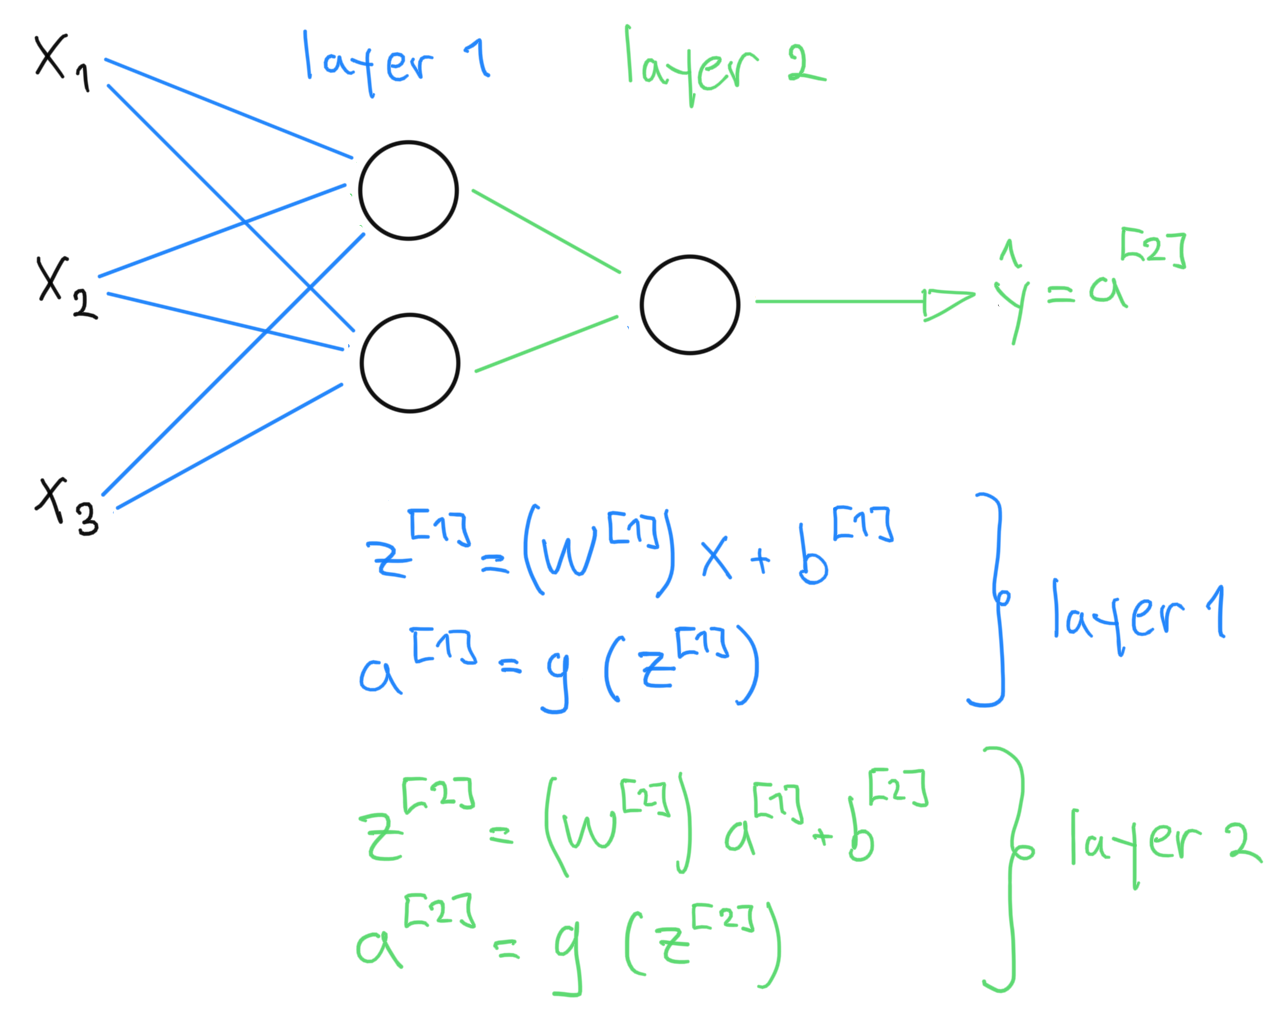 x₁
layer 1
layer 2
x₂
ŷ = a^[2]
x₃
z^[1] = (W^[1]) x + b^[1]
a^[1] = g (z^[1])
layer 1
z^[2] = (W^[2]) a^[1] + b^[2]
a^[2] = g (z^[2])
layer 2